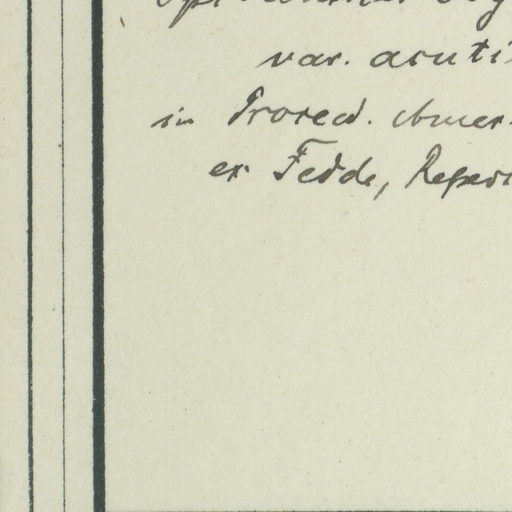 var. acuti
in Proced. Amer.
ex Fedde, Repert